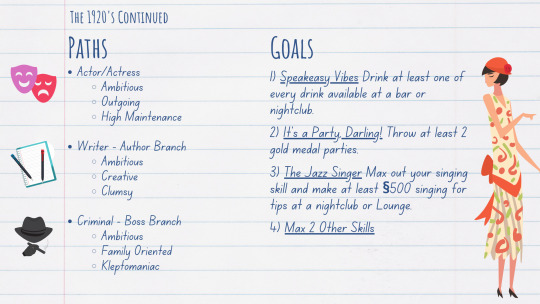 The 1920's Continued
Paths
• Actor/Actress
○ Ambitious
○ Outgoing
○ High Maintenance
• Writer - Author Branch
○ Ambitious
○ Creative
○ Clumsy
• Criminal - Boss Branch
○ Ambitious
○ Family Oriented
○ Kleptomaniac
Goals
1) Speakeasy Vibes Drink at least one of
every drink available at a bar or
nightclub.
2) It's a Party, Darling! Throw at least 2
gold medal parties.
3) The Jazz Singer Max out your singing
skill and make at least §500 singing for
tips at a nightclub or Lounge.
4) Max 2 Other Skills